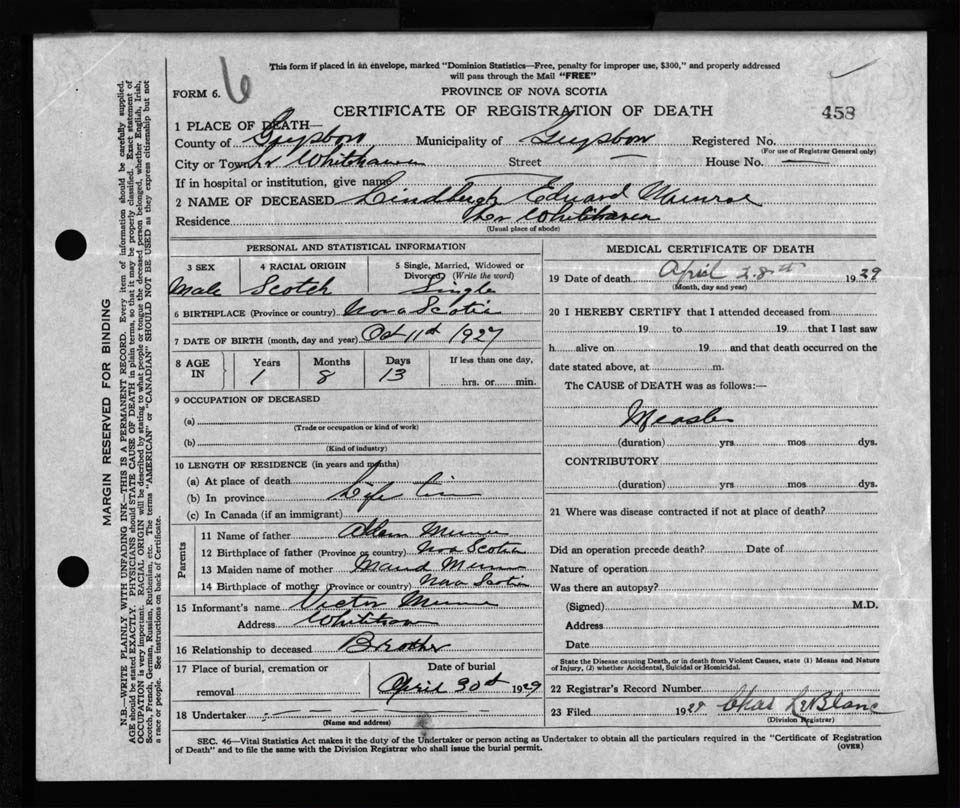 This form if placed in an envelope, marked "Dominion Statistics—Free, penalty for improper use, $300," and properly addressed
will pass through the Mail "FREE"
FORM 6. 6
PROVINCE OF NOVA SCOTIA
CERTIFICATE OF REGISTRATION OF DEATH 458
1 PLACE OF DEATH—
County of Guysboro Municipality of Guysboro Registered No.
(For use of Registrar General only)
City or Town Lr Whitehaven Street — House No. —
If in hospital or institution, give name
2 NAME OF DECEASED Lindbergh Edward Munroe
Residence Lr Whitehaven
(Usual place of abode)
PERSONAL AND STATISTICAL INFORMATION
3 SEX 4 RACIAL ORIGIN 5 Single, Married, Widowed or
Divorced (Write the word)
Male Scotch Single
6 BIRTHPLACE (Province or country) Nova Scotia
7 DATE OF BIRTH (month, day and year) Oct 11th 1927
8 AGE IN Years Months Days If less than one day,
1 8 13 hrs. or min.
9 OCCUPATION OF DECEASED
(a)
(Trade or occupation or kind of work)
(b)
(Kind of industry)
10 LENGTH OF RESIDENCE (in years and months)
(a) At place of death
(b) In province Life time
(c) In Canada (if an immigrant)
Parents
11 Name of father Adam Munroe
12 Birthplace of father (Province or country) Nova Scotia
13 Maiden name of mother Maud Munroe
14 Birthplace of mother (Province or country) Nova Scotia
15 Informant's name Victor Munroe
Address Whitehaven
16 Relationship to deceased Brother
17 Place of burial, cremation or Date of burial
removal April 30th 1929
18 Undertaker — — — —
(Name and address)
MEDICAL CERTIFICATE OF DEATH
19 Date of death April 28th 1929
(Month, day and year)
20 I HEREBY CERTIFY that I attended deceased from
19 to 19 that I last saw
h alive on 19 and that death occurred on the
date stated above, at m.
The CAUSE of DEATH was as follows:—
Measles
(duration) yrs mos dys.
CONTRIBUTORY
(duration) yrs mos dys.
21 Where was disease contracted if not at place of death?
Did an operation precede death? Date of
Nature of operation
Was there an autopsy?
(Signed) M.D.
Address
Date
State the Disease causing Death, or in death from Violent Causes, state (1) Means and Nature
of Injury, (2) whether Accidental, Suicidal or Homicidal.
22 Registrar's Record Number
23 Filed 1929 Chas LeBlanc
(Division Registrar)
SEC. 46—Vital Statistics Act makes it the duty of the Undertaker or person acting as Undertaker to obtain all the particulars required in the "Certificate of Registration
of Death" and to file the same with the Division Registrar who shall issue the burial permit. (OVER)
MARGIN RESERVED FOR BINDING
N.B.—WRITE PLAINLY WITH UNFADING INK—THIS IS A PERMANENT RECORD. Every item of information should be carefully supplied.
AGE should be stated EXACTLY. PHYSICIANS should STATE CAUSE OF DEATH in plain terms, so that it may be properly classified. Exact statement of
OCCUPATION is very important. RACIAL ORIGIN will be described by stating to what people or tongue the deceased person belonged, whether English, Irish,
Scotch, French, German, Russian, Ruthenian, etc. The terms "AMERICAN" or "CANADIAN" SHOULD NOT BE USED as they express citizenship but not
a race or people. See instructions on back of Certificate.